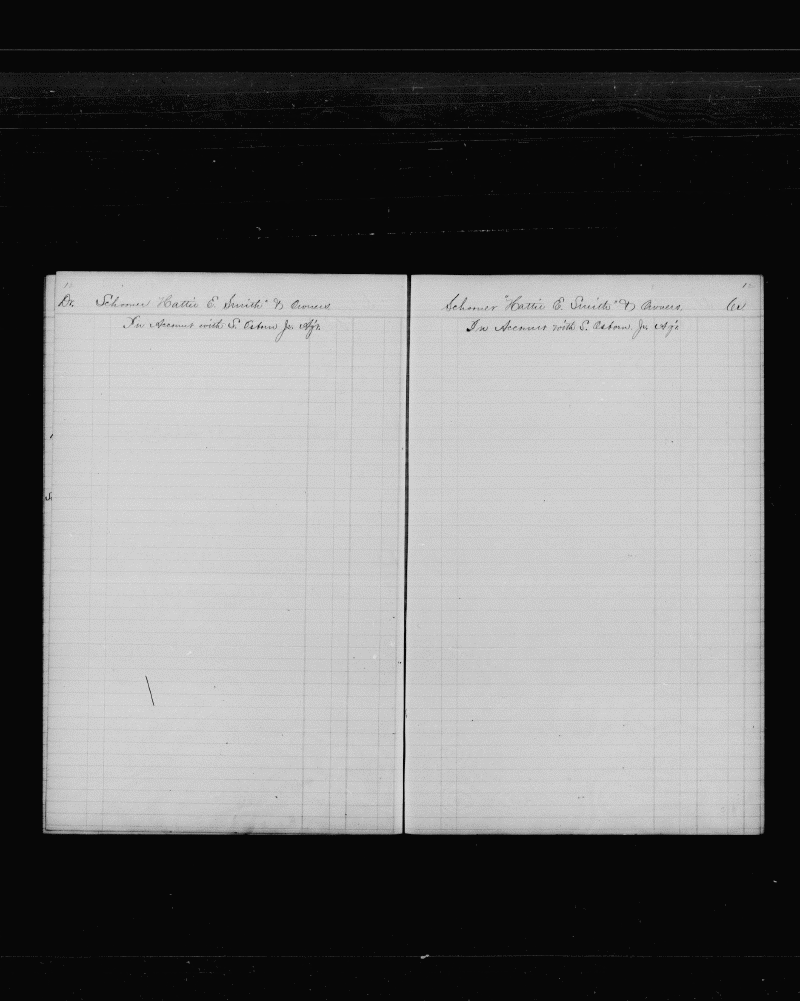 11
Dr. Schooner "Hattie E. Smith" & Owners
In Account with S. Osborn Jr. Agt.
Schooner "Hattie E. Smith" & Owners. Cr
In Account with S. Osborn. Jr. Agt.